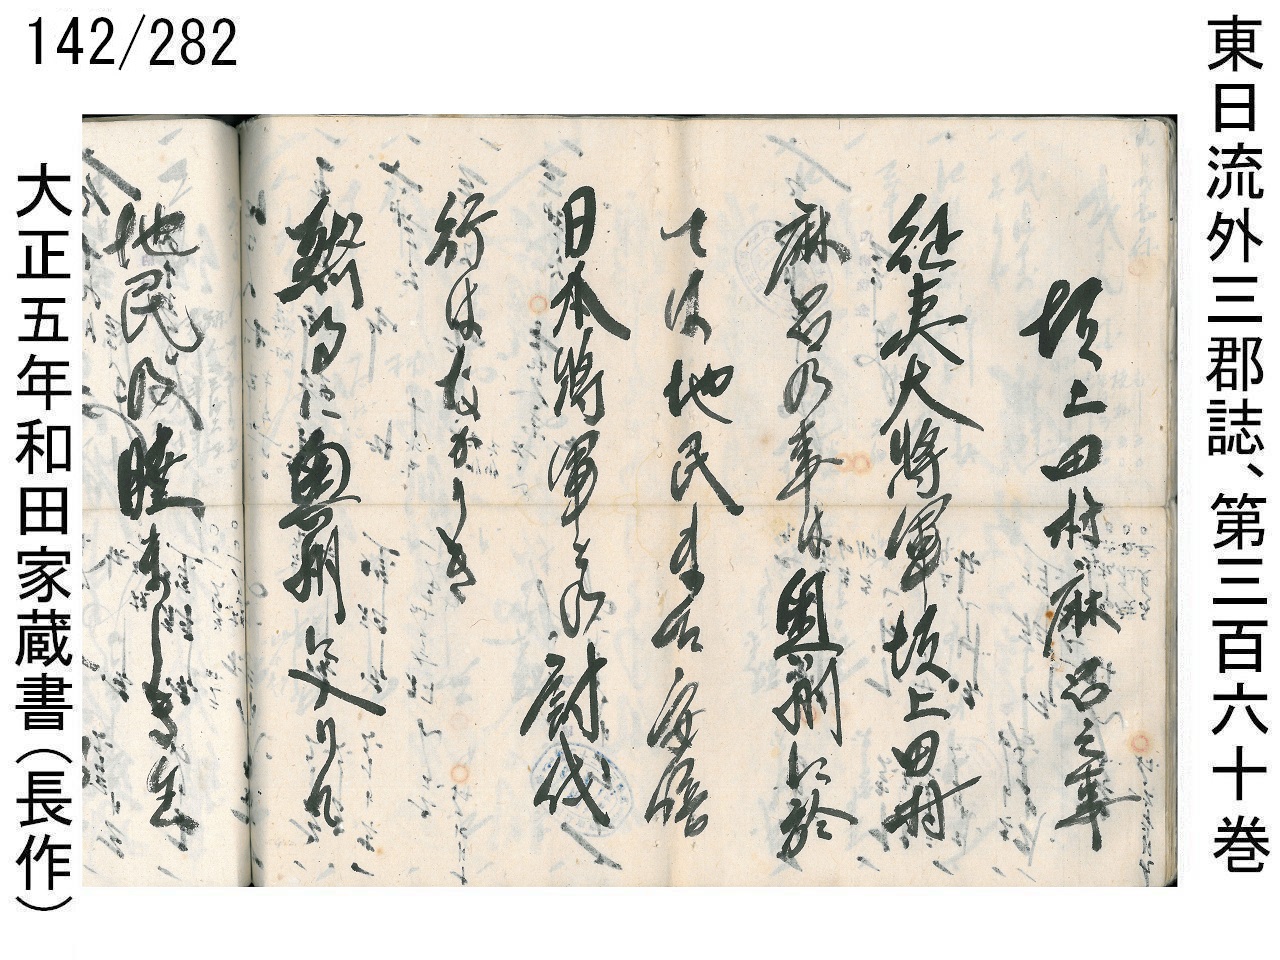 142/282
東日流外三郡誌、第三百六十巻
坂上田村麻呂之事
征夷大将軍坂上田村
麻呂の事は奥州に於
ては地民も召安倍
日本将軍とも討伐
行はなかりき
に奥州に入りて
地民及睦
大正五年和田家蔵書(長作)